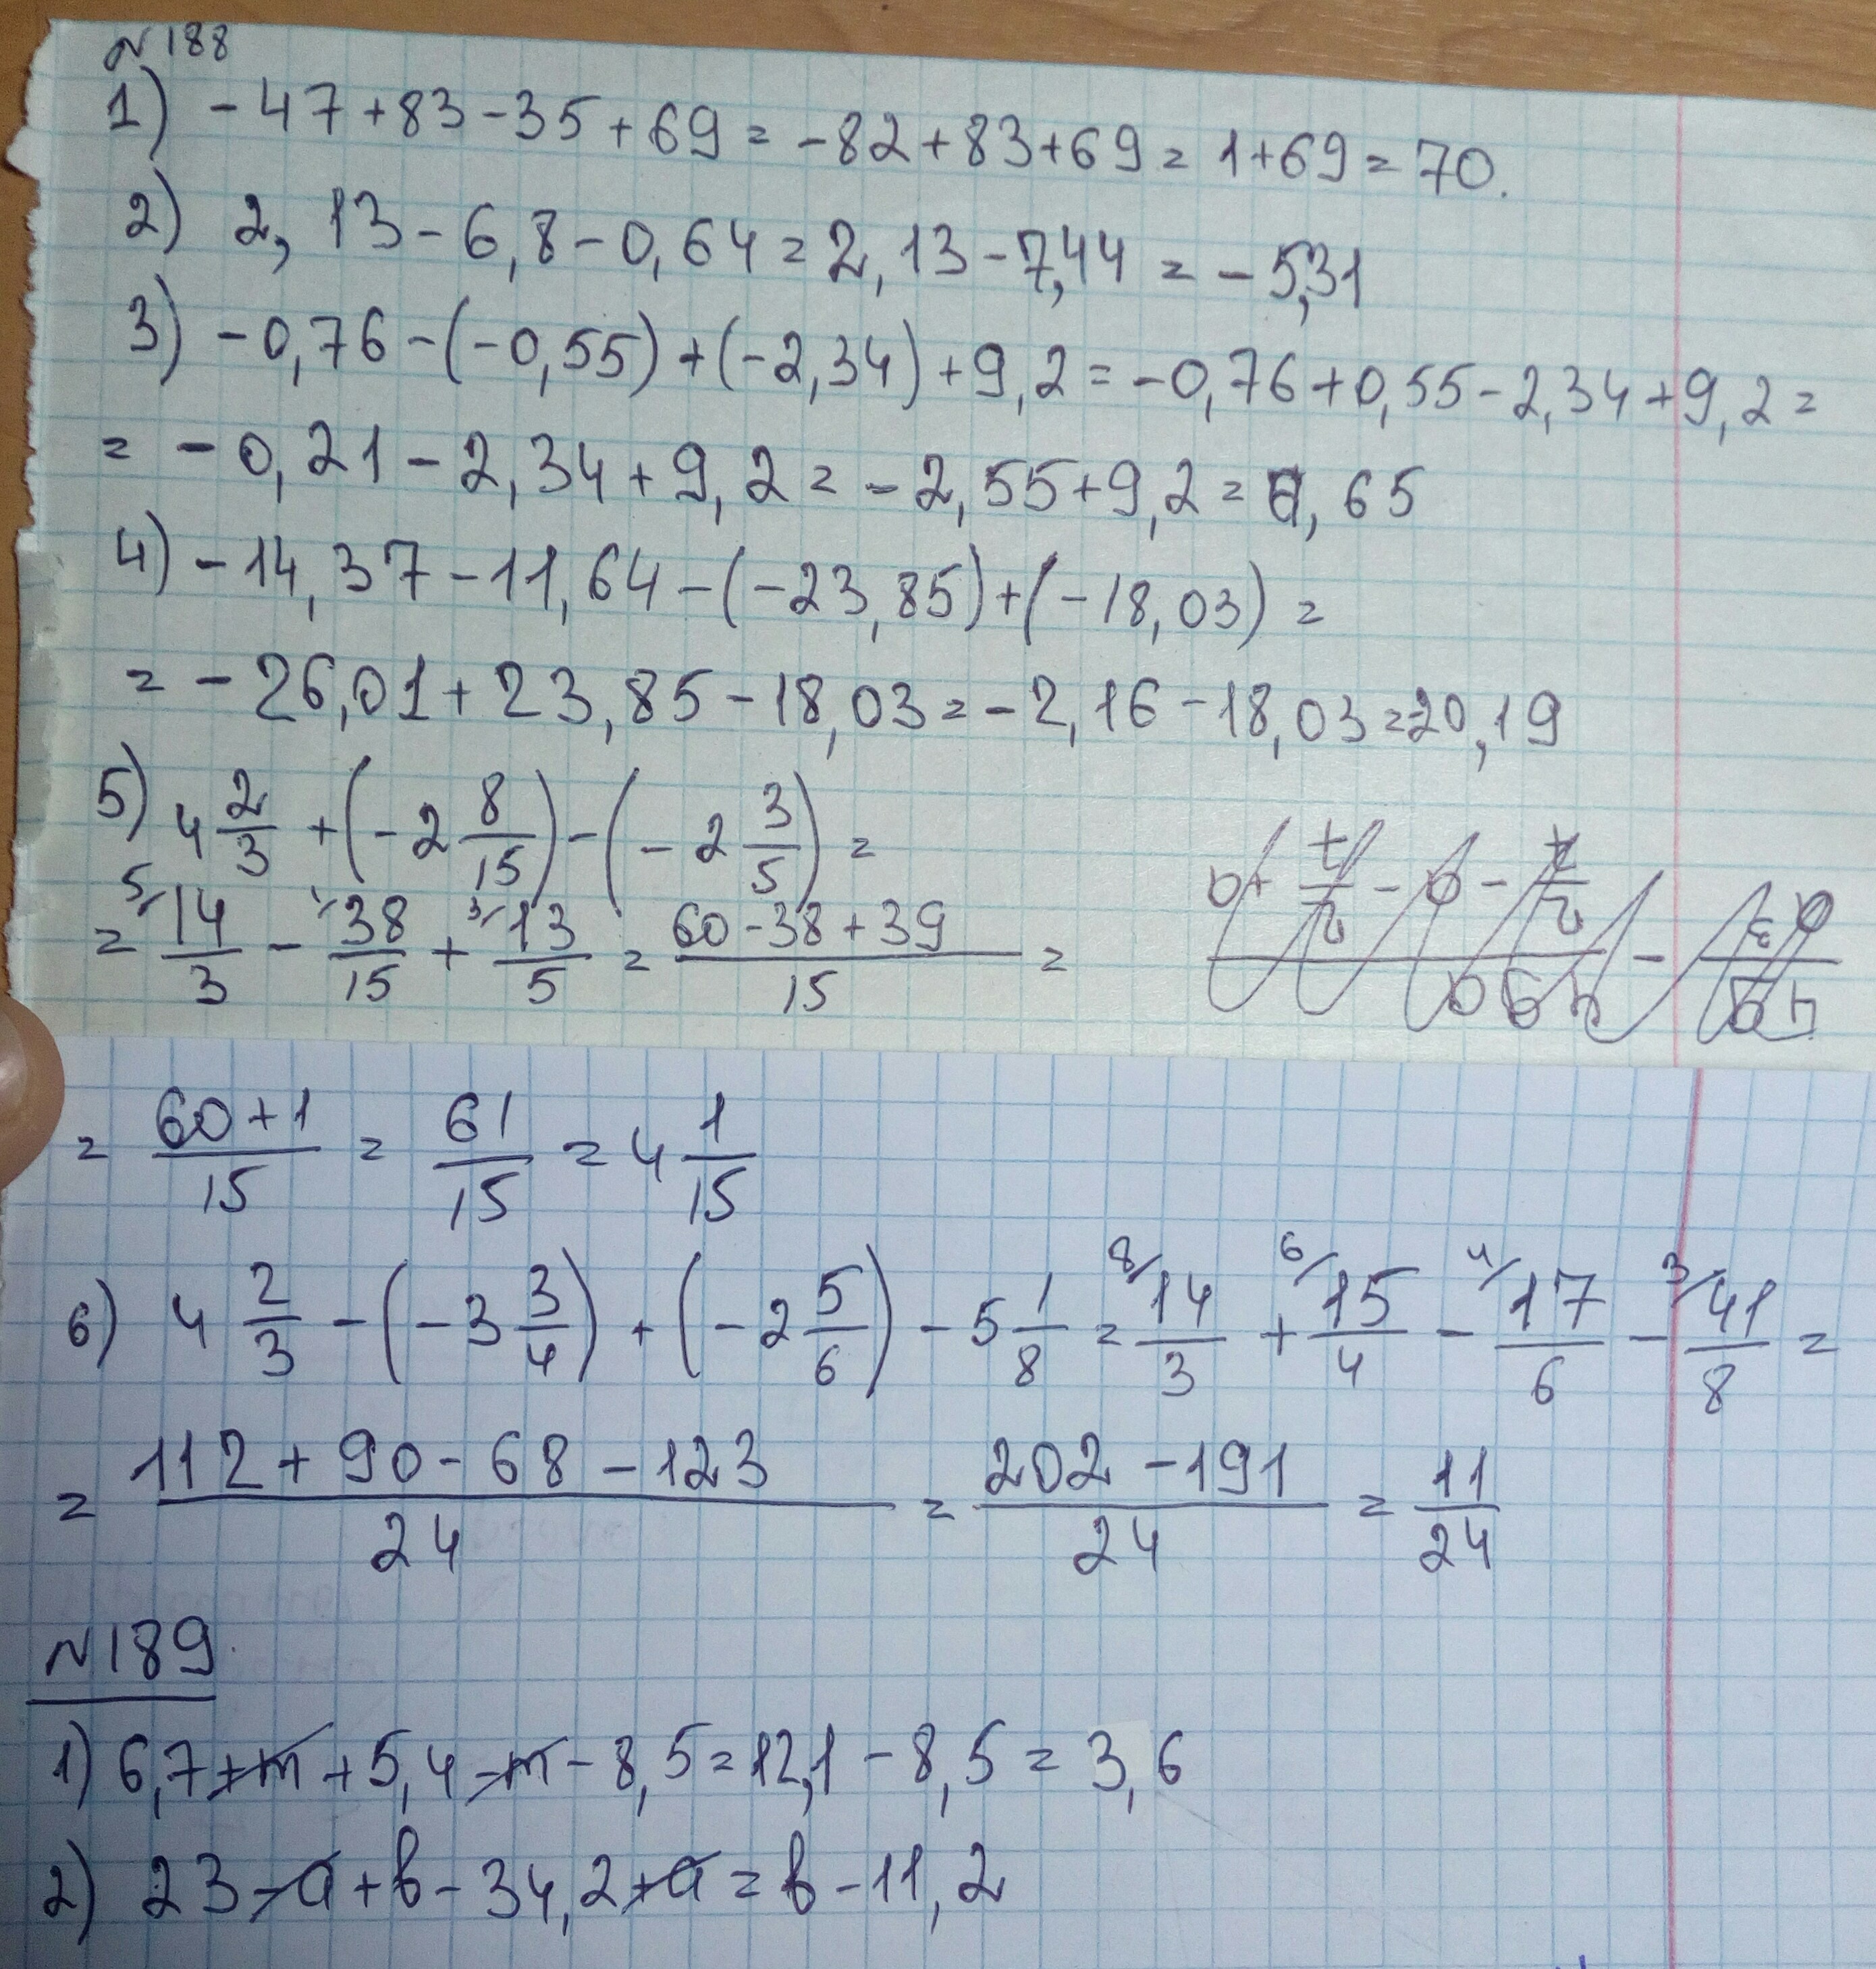 №188
1) -47+83-35+69=-82+83+69=1+69=70.
2) 2,13-6,8-0,64=2,13-7,44=-5,31
3) -0,76-(-0,55)+(-2,34)+9,2=-0,76+0,55-2,34+9,2=
=-0,21-2,34+9,2=-2,55+9,2=6,65
4) -14,37-11,64-(-23,85)+(-18,03)=
=-26,01+23,85-18,03=-2,16-18,03=20,19
5) 4 2/3 + (-2 8/15) - (-2 3/5) =
= 5/ 14/3 - 1/ 38/15 + 3/ 13/5 = (60-38+39)/15 =
= (60+1)/15 = 61/15 = 4 1/15
6) 4 2/3 - (-3 3/4) + (-2 5/6) - 5 1/8 = 8/ 14/3 + 6/ 15/4 - 4/ 17/6 - 3/ 41/8 =
= (112+90-68-123)/24 = (202-191)/24 = 11/24
№189.
1) 6,7+m+5,4-m-8,5=12,1-8,5=3,6
2) 23-a+b-34,2+a=b-11,2